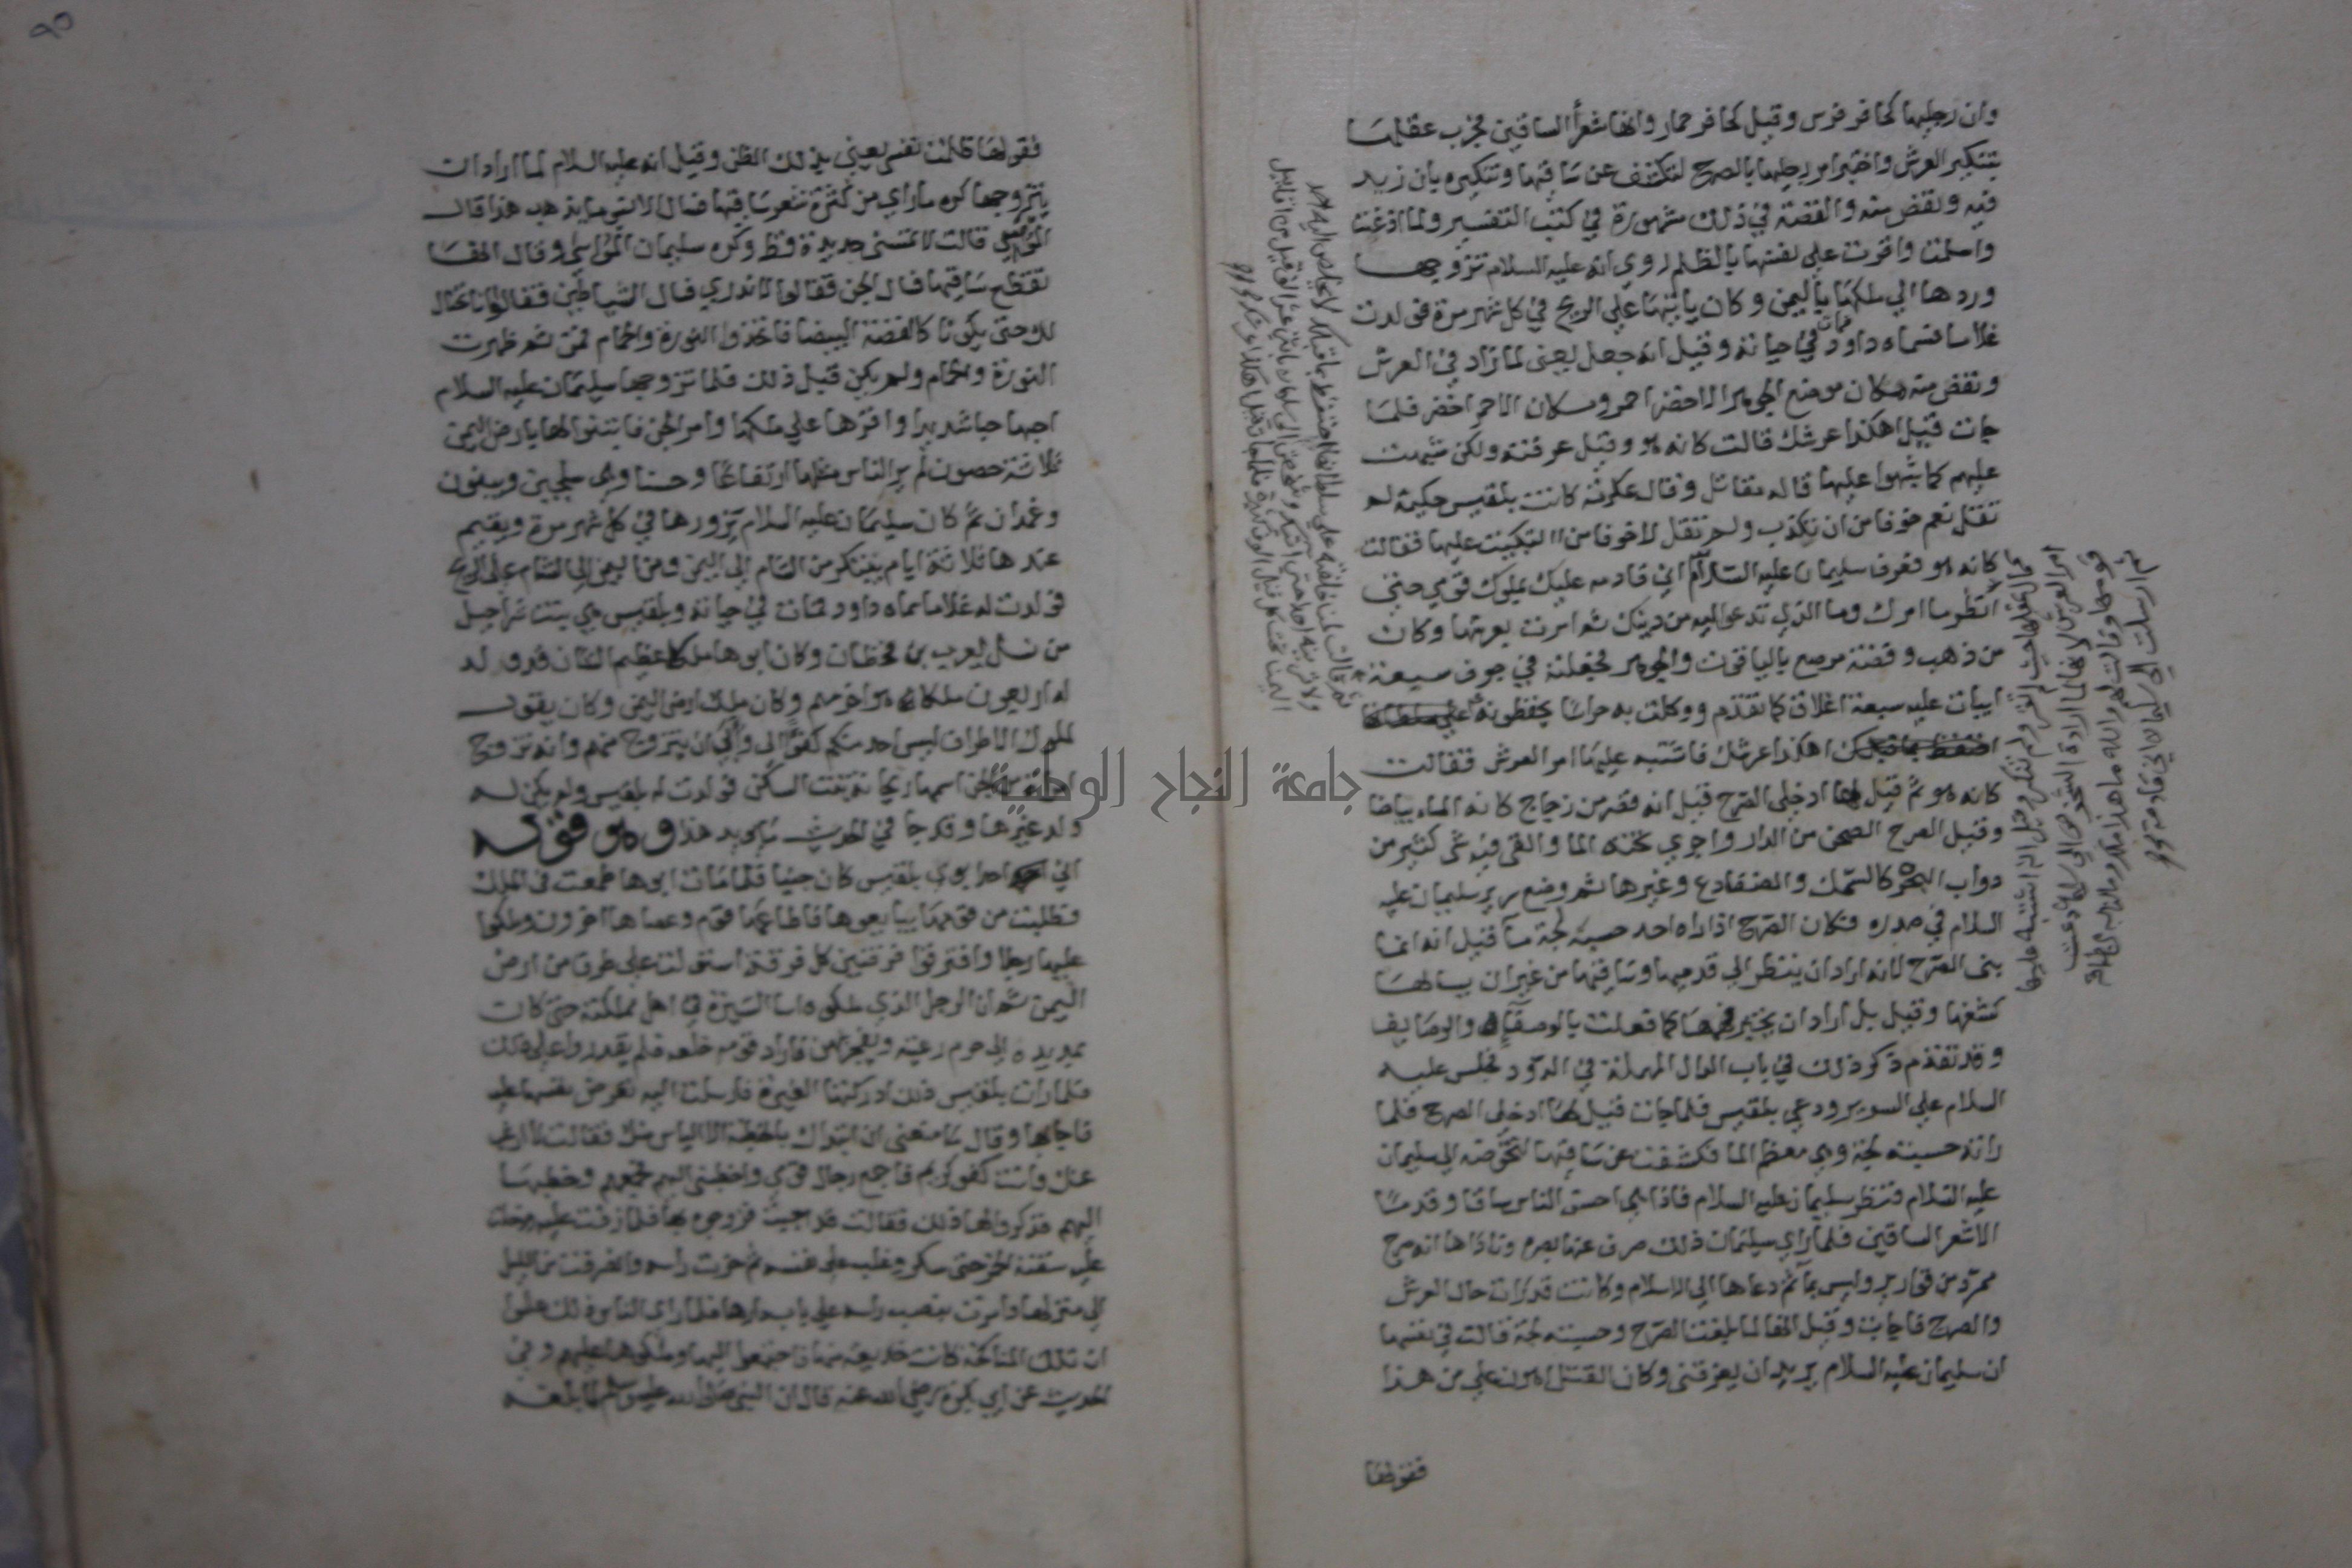 وان رجليها كحافر فرس وقيل كحافر حمار وانها شعرأ الساقين فجرب عقلها
بتنكير العرش واختبر امر رجليها بالصرح لتكشف عن ساقيها وتنكيره بان زيد
فيه ونقض منه والقصة في ذلك مشهورة في كتب التفسير ولما اذعنت
واسلمت واقرت على نفسها بالظلم روي انه عليه السلام تزوجها
وردها الي ملكها باليمن وكان ياتيها علي الريح في كل شهر مرة فولدت
غلاما فسماه داود فمات في حياته وقيل انه جعل يعني لما زاد في العرش
ونقض منه مكان موضع الجوهر الاخضر احمر ومكان الاحمر اخضر فلما
جات قيل اهكذا عرشك قالت كانه هو وقيل عرفته ولكن شبهت
عليهم كما شبهوا عليها قاله مقاتل وقال عكرمة كانت بلقيس حكيمة لم
تقل نعم خوفا من ان تكذب ولم تقل لا خوفا من التبكيت عليها فقالت
كانه هو فعرف سليمان عليه السلام اني قادمه عليك بملوك قومي حتي
انظر ما امرك وما الذي تدعو اليه من دينك ثم امرت بعرشها وكان
من ذهب وفضة مرصع بالياقوت والجوهر فجعلته في جوف سبعة
ابيات عليه سبعة اغلاق كما تقدم ووكلت به حراسا يحفظونه علي سلطانها
احتفظ بما قبلك اهكذا عرشك فاشتبه عليها امر العرش فقالت
كانه هو ثم قيل لها ادخلي الصرح قيل انه قصر من زجاج كانه الماء بياضا
وقيل الصرح الصحن من الدار واجري تحته الما والقي فيه شي كثير من
دواب البحر كالسمك والضفادع وغيرها ثم وضع سرير سليمان عليه
السلام في صدره فكان الصرح اذا راه احد حسبه لجة ما قيل انه انما
بنى الصرح لانه اراد ان ينظر الي قدميها وساقيها من غير ان يسالها
كشفها وقيل بل اراد ان يختبر فهمها كما فعلت بالوصفاء والوصايف
وقد تقدم ذكر ذلك في باب الدال المهملة في الدود فجلس عليه
السلام علي السرير ودعي بلقيس فلما جات قيل لها ادخلي الصرح فلما
راته حسبته لجة وهي معظم الما فكشفت عن ساقيها لتخوضه الي سليمان
عليه السلام فنظر سليمان عليه السلام فاذا هي احسن الناس ساقا وقدما
الا شعر الساقين فلما راي سليمان ذلك صرف عنها بصره وناداها انه صرح
ممرد من قوارير وليس بما ثم دعاها الي الاسلام وكانت قد رات حال العرش
والصرح فاجابت وقيل انها لما بلغت الصرح وحسبته لجة قالت في نفسها
ان سليمان عليه السلام يريد ان يغرقني وكان القتل اهون علي من هذا
فقولها
ثم قالت لمن خلفته علي سلطانها احتفظ بما قبلك لا يخلص اليه احد
فقولها ظلمت نفسي يعني بذلك الظن وقيل انه عليه السلام لما اراد ان
يتزوجها كره ما راي من كثرة شعر ساقيها فسال الانس ما يذهب هذا قالوا
الموسى قالت لا تمسني حديدة قط وكره سليمان الموسى وقال انها
تقطع ساقيها فسال الجن فقالوا لا ندري فسال الشياطين فقالوا انا نحتال
لك حتى يكونا كالفضة البيضا فاتخذوا النورة والحمام فمن ثم ظهرت
النورة والحمام ولم يكن قبل ذلك فلما تزوجها سليمان عليه السلام
احبها حبا شديدا واقرها علي ملكها وامر الجن فابتنوا لها بارض اليمن
ثلاثة حصون لم ير الناس مثلها ارتفاعا وحسنا وهي سلحين وبينون
وغمدان ثم كان سليمان عليه السلام يزورها في كل شهر مرة ويقيم
عندها ثلاثة ايام يبتكر من الشام الي اليمن ومن اليمن الي الشام علي الريح
فولدت له غلاما سماه داود فمات في حياته وبلقيس هي بنت شراحيل
من نسل يعرب بن قحطان وكان ابوها ملكا عظيم الشان قد ولد
له اربعون ملكا هو اخرهم وكان ملك ارض اليمن وكان يقول
لملوك الاطراف ليس احد منكم كفوا لي وابي ان يتزوج منهم وانه تزوج
امراة من الجن اسمها ريحانة بنت السكن فولدت له بلقيس ولم يكن له
ولد غيرها وقد جا في الحديث ما يويد هذا وهو قوله
ان احد ابوي بلقيس كان جنيا فلما مات ابوها طمعت في الملك
فطلبت من قومها ان يبايعوها فاطاعها قوم وعصاها اخرون وملكوا
عليها رجلا وافترقوا فرقتين كل فرقة استولت على طرف من ارض
اليمن ثم ان الرجل الذي ملكوه اسا السيرة في اهل مملكته حتي كان
يمد يده الي حرم رعيته ويفجر بهن فاراد قومه خلعه فلم يقدروا علي ذلك
فلما رات بلقيس ذلك ادركتها الغيرة فارسلت اليه تعرض نفسها عليه
فاجابها وقال ما منعني ان ابتداك بالخطبة الا الياس منك فقالت لا ارغب
عنك وانت كفو كريم فاجمع رجال قومي واخطبني اليهم فجمعهم وخطبها
اليهم فذكروا لها ذلك فقالت قد اجبت فزوجوه بها فلما زفت عليه ودخلت
عليه سقته الخمر حتي سكر وغلب علي نفسه ثم حزت راسه وانصرفت من الليل
الي منزلها وامرت بنصب راسه علي باب دارها فلما راي الناس ذلك علموا
ان تلك المناكحة كانت خديعة منها فاجتمعوا اليها وملكوها عليهم وفي
الحديث عن ابي بكرة رضي الله عنه قال ان النبي صلى الله عليه وسلم لما بلغه
جامعة النجاح الوطنية